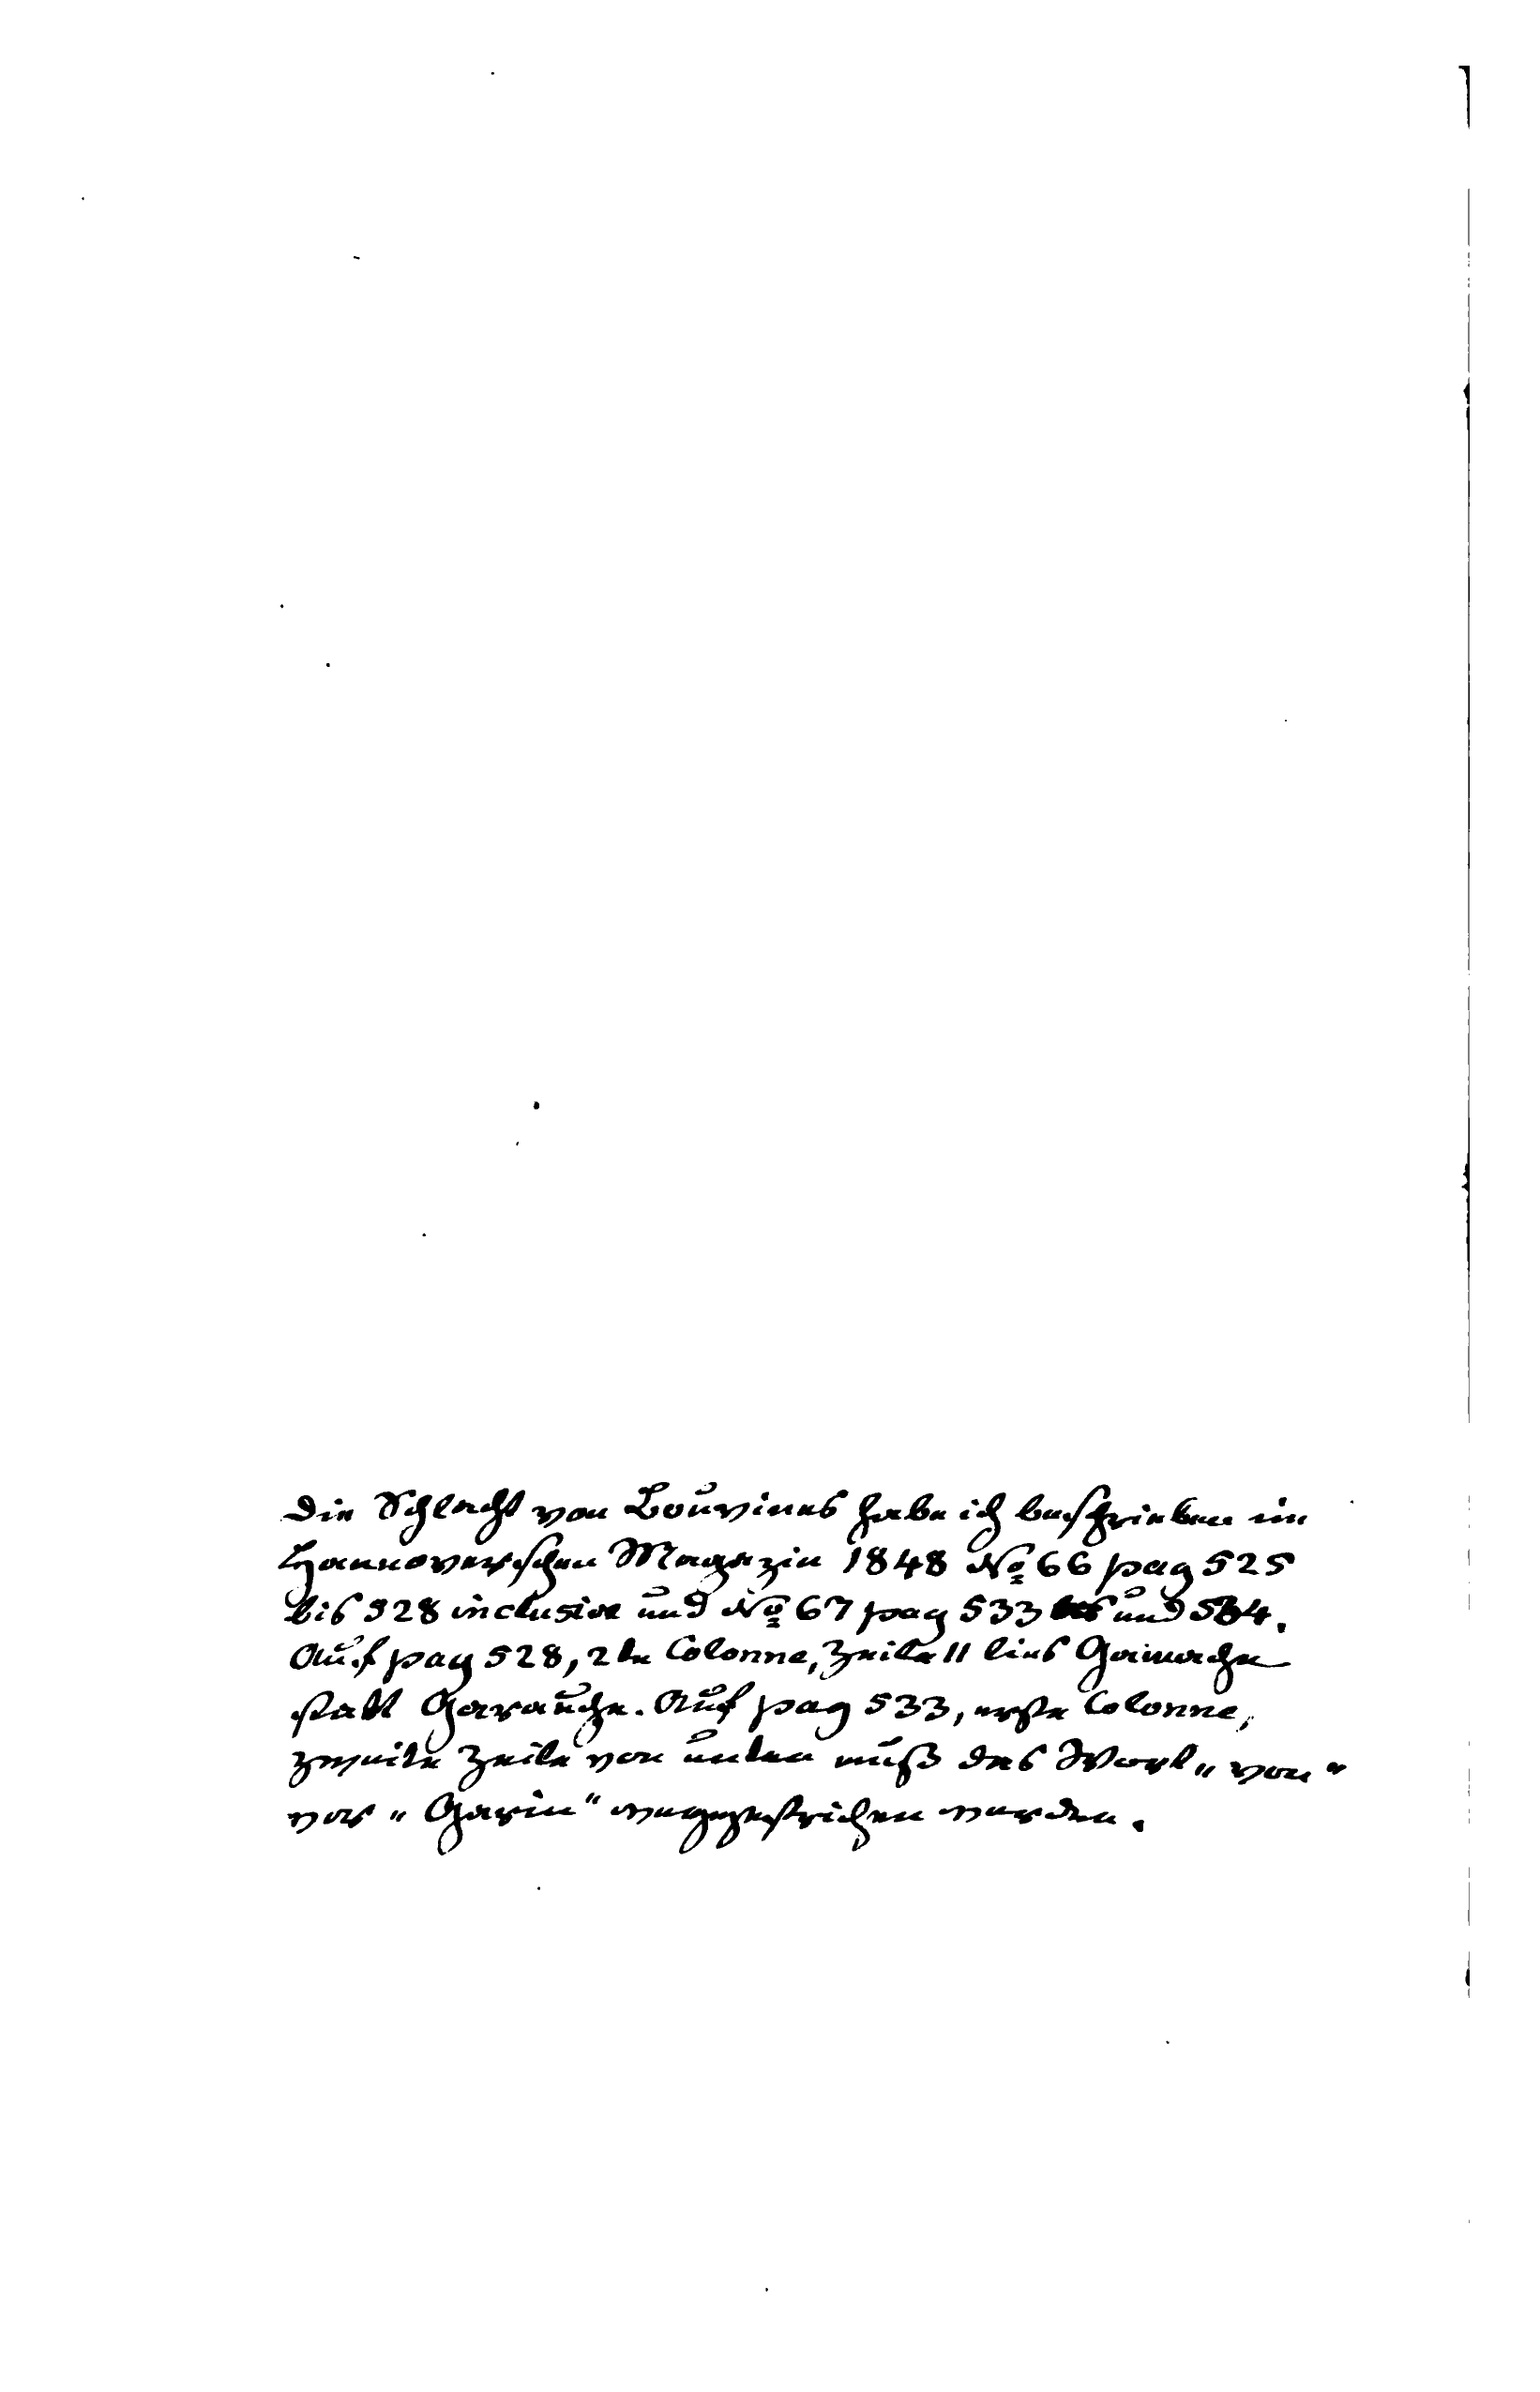 Die Schlacht von Bouvines habe ich beschrieben im
Hannoverschen Magazin 1848 No 66 pag 525
bis 528 inclusive und No 67 pag 533 und 534.
Auf pag 528, 2te Colonne, Zeile 11 lies Gamache
statt Garauche. Auf pag 533, erste Colonne,
zweite Zeile von unten muß das Wort „von"
vor „Garin" weggestrichen werden.